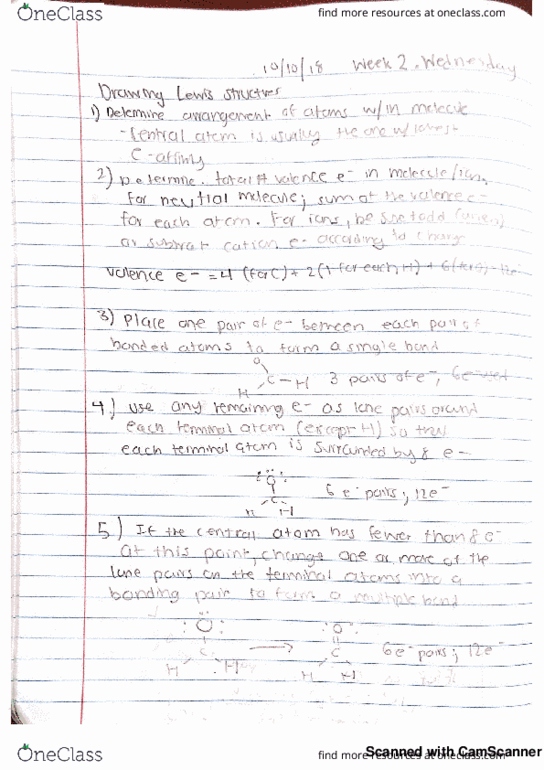 OneClass
find more resources at oneclass.com
10/10/18 Week 2. Wednesday
Drawing Lewis structures
1) Determine arrangement of atoms w/in molecule
- Central atom is usually the one w/ lowest
e-affinity
2) Determine total # valence e- in molecule/ions.
For neutral molecule; sum of the valence e-
for each atom. For ions, be sure to add (anion)
or subtract cation e- according to charge
valence e- = 4 (for C) + 2(1 for each, H) + 6 = 12e-
3) Place one pair of e- between each pair of
bonded atoms to form a single bond
O
C - H 3 pairs of e-, 6e-
H
4) use any remaining e- as lone pairs around
each terminal atom (except H) so that
each terminal atom is surrounded by 8 e-
O
C 6 e- pairs; 12e-
H H
5) If the central atom has fewer than 8 e-
at this point, change one or more of the
lone pairs on the terminal atoms into a
bonding pair to form a multiple bond
:O: → :O:
C C 6e- pairs; 12e-
H H H H
OneClass
find more resources at oneclass.com
Scanned with CamScanner